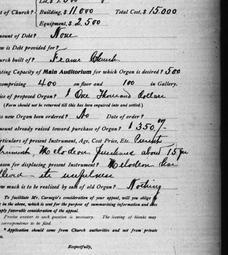 t of Church? Building, $ 11,000 Total Cost, $ 15000
Equipment, $ 2500
mount of Debt? None
ow is Debt provided for?
urch built of? Frame Church
ating Capacity of Main Auditorium for which Organ is desired? 500
comprising 400 on floor and 100 in Gallery.
rice of proposed Organ? $ One Thousand Dollars
(Form should not be returned till this has been enquired into and settled).
s new Organ been ordered? No Date of order?
mount already raised toward purchase of Organ? $ 350
articulars of present Instrument, Age, Cost Price, Etc.
Melodeon purchased about 15 yr
eason for displacing present Instrument? Melodeon has
its usefulness
ow much is to be realized by sale of old Organ? Nothing
To facilitate Mr. Carnegie's consideration of your appeal, will you oblige
in the above, which is sent for the purpose of summarizing information and
ply favorable consideration of the appeal.
Precise answer to each question is necessary. The leaving of blanks may
correspondence to be
* Application should come from Church authorities and not from private
Respectfully,